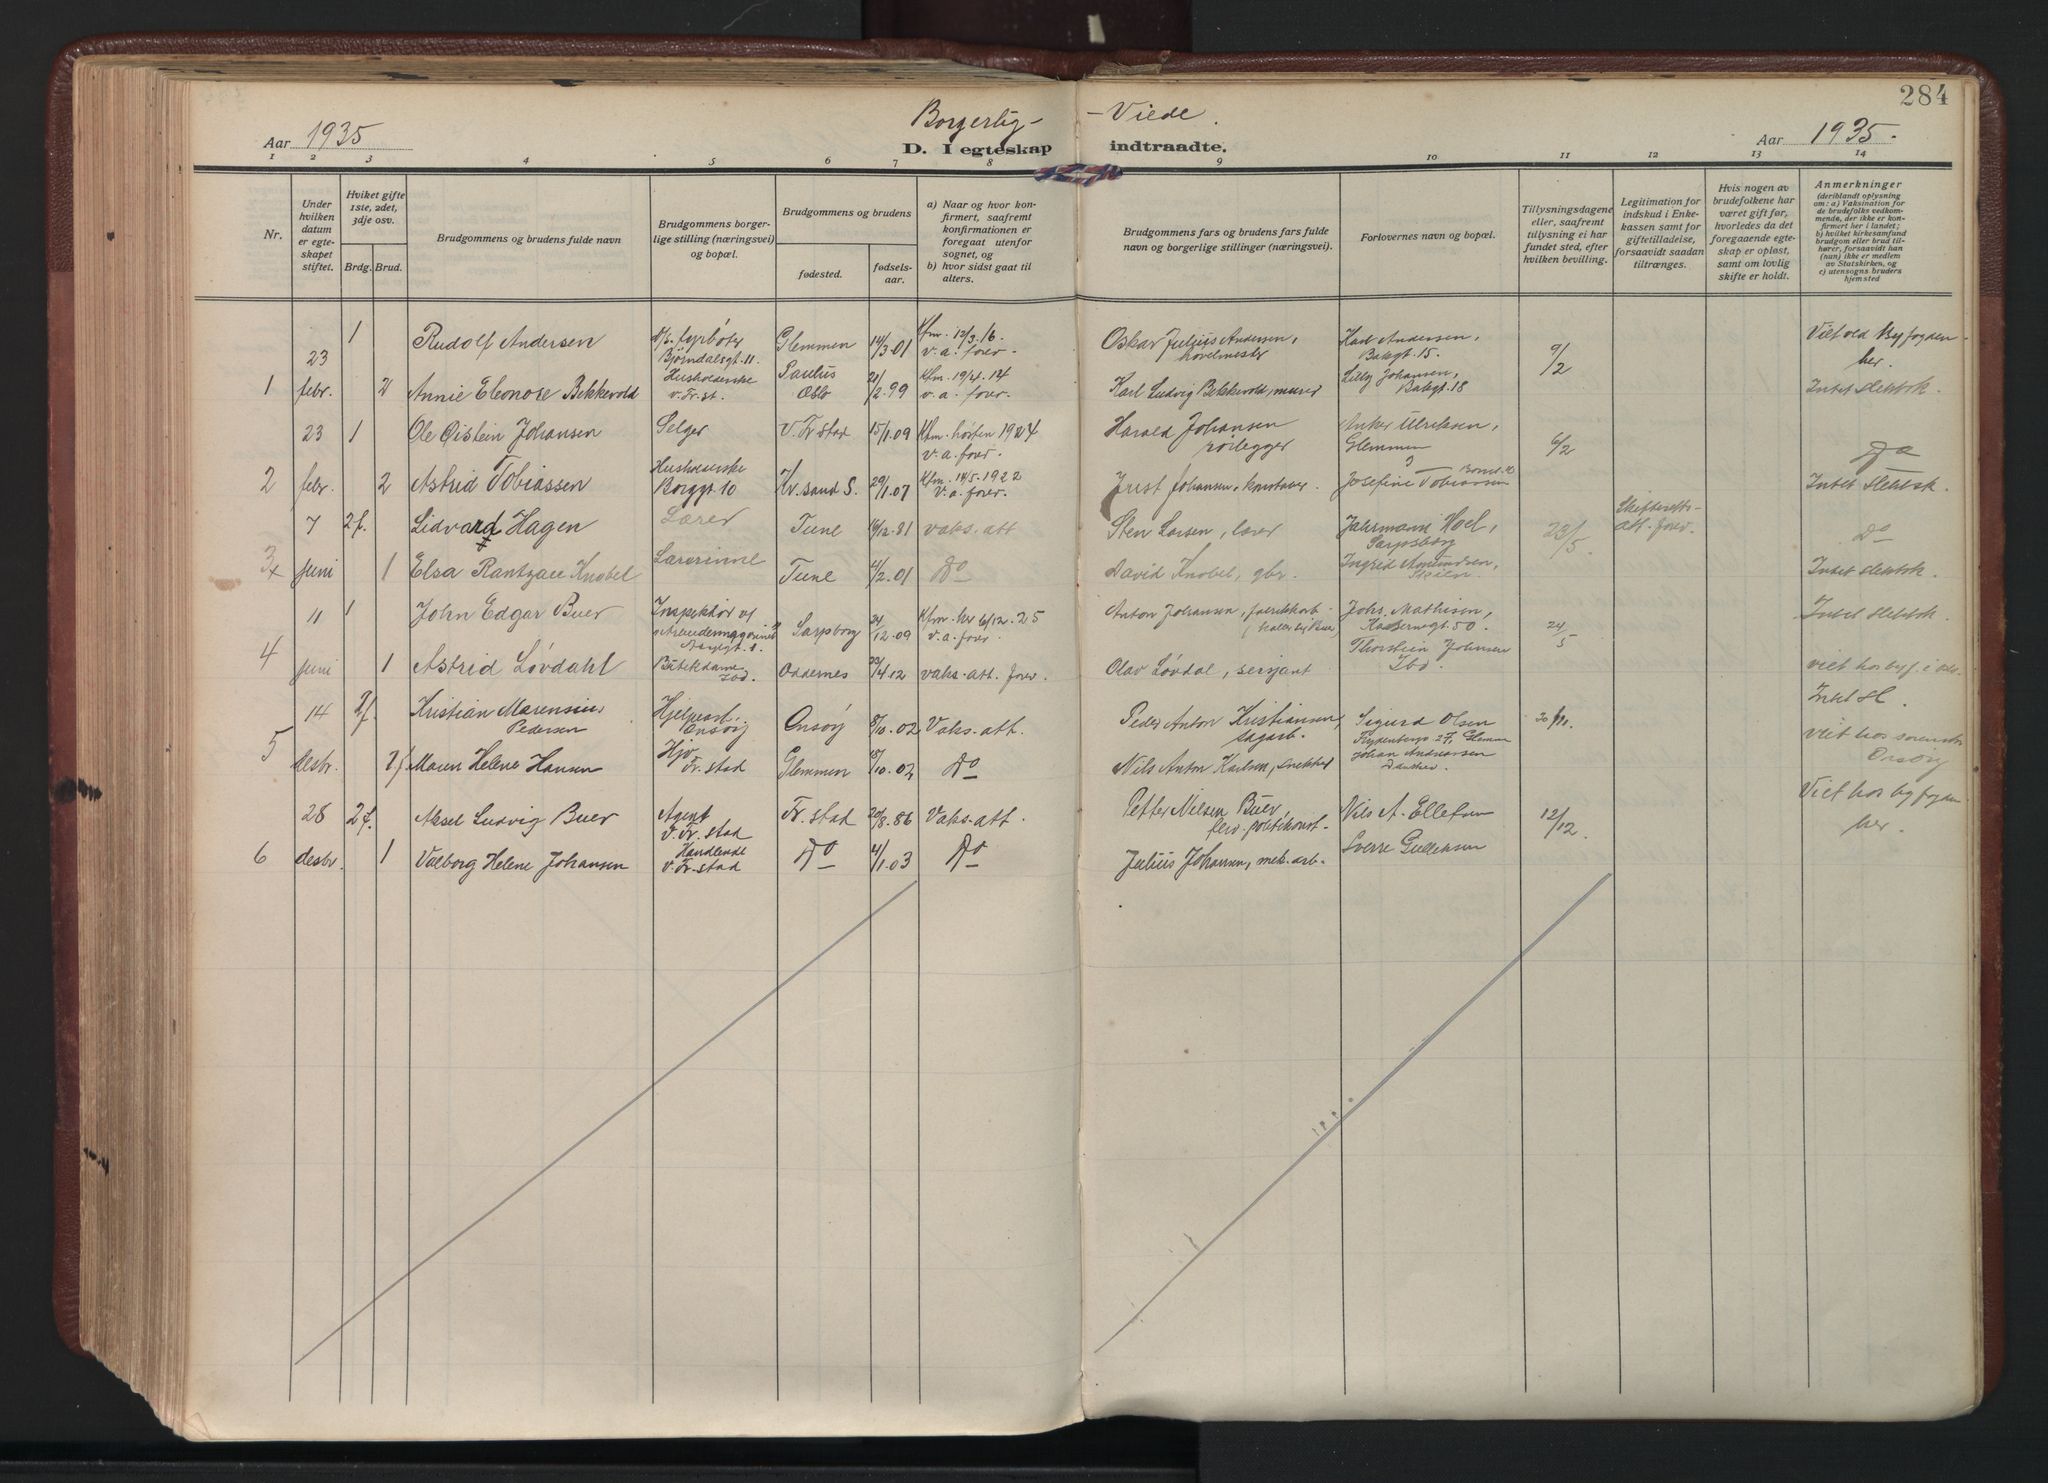 284
Borgerlig - - Viede.
Aar 1935
D. I egteskap indtraadte.
Aar 1935.
1 2 3 4 5 6 7 8 9 10 11 12 13 14
Nr.
Under hvilken datum er egteskapet stiftet.
Hviket gifte 1ste, 2det, 3dje osv.
Brdg. Brud.
Brudgommens og brudens fulde navn
Brudgommens borgerlige stilling (næringsvei) og bopæl.
Brudgommens og brudens
fødested.
fødselsaar.
a) Naar og hvor konfirmert, saafremt konfirmationen er foregaat utenfor sognet, og
b) hvor sidst gaat til alters.
Brudgommens fars og brudens fars fulde navn og borgerlige stillinger (næringsvei).
Forlovernes navn og bopæl.
Tillysningsdagene eller, saafremt tillysning ei har fundet sted, efter hvilken bevilling.
Legitimation for indskud i Enkekassen samt for giftetilladelse, forsaavidt saadan tiltrænges.
Hvis nogen av brudefolkene har været gift før, hvorledes da det foregaaende egteskap er opløst, samt om lovlig skifte er holdt.
Anmerkninger
(deriblandt oplysning om: a) Vaksination for de brudefolks vedkommende, der ikke er konfirmert her i landet; b) hvilket kirkesamfund brudgom eller brud tilhører, forsaavidt han (hun) ikke er medlem av Statskirken, og c) utensogns bruders hjemsted
23 1 Rudolf Andersen d/s. fyrbøter Bjørndalsgt. 11. Glemmen 14/3.01 Kfm. 12/3.16. v. a. forer. Oskar Julius Andersen, hovelmester Karl Andersen, Bakgt. 15. 9/2 Viet ved Byfogden her.
1 febr. 2 Annie Eleonore Bekkevold Husholderske v. Fr.st. Paulus Oslo 28/2.99 Kfm. 19/4.14 v. a. forer. Karl Ludvig Bekkevold, murer Lilly Johansen, Bakgt. 18 Intet slektsk.
23 1 Ole Øistein Johansen Selger V. Fr.stad 15/1.09 Kfm. høsten 1924 v. a. forer. Harald Johansen rørlegger Anker Ulriksen, Glemmen 6/2 Do
2 febr. 2 Astrid Tobiassen Husholderske Borggt. 10 Kr.sand S. 29/1.07 Kfm. 14/5.1922 v. a. forer. Just Johansen, Josefine Tobiassen Intet slektsk.
7 2f. Lidvard Hagen Lærer Tune 16/12.81 vaks. att Sten Larsen, lærer Hoel, Sarpsborg 23/5 Skifteretts- att. forer. Do
3x juni 1 Elsa Rantzau Knobel Lærerinne Tune 4/2.01 Do David Knobel, gbr. Ingrid Amundsen, Skien Intet slektsk.
11 1 John Edgar Buer Inspektør Sarpsborg 24/12.09 Kfm. her 6/12.25 v. a. forer. Anton Johansen, fabrikkarb. (kaller sig Buer) Johs. Mathisen, Kasernegt. 50. 24/5 Intet slektsk
4 juni 1 Astrid Løvdahl Butikdame Ibd. Oddernes 23/4.12 vaks. att. forer. Olav Løvdal, sersjant Thorstein Johnsen Ibd. viet hos byf. i
14 2f. Kristian Marensius Pedersen Hjelpearb. Onsøy 8/10.02 Vaks. att. Peder Anton Kristiansen, sagarb. Sigurd Olsen 2 F, Glemmen 30/10. Intet sl.
5 desbr. 2f. Maren Helene Hansen Fr.stad Glemmen 15/10.02 Do Nils Anton Karlsen, snekker Johan Andreassen viet hos sorenskr. Onsøy
28 2f. Aksel Ludvig Buer Agent V. Fr.stad Fr.stad 20/8.86 Vaks. att. Petter Nilsen Buer, politikonst. Nils A. Elletun 12/12. Viet hos byfogden her.
6 desbr. 1 Valborg Helene Johansen Handlende V. Fr.stad Do 4/1.03 Do Julius Johansen, mek. arb. Sverre Gulleksen